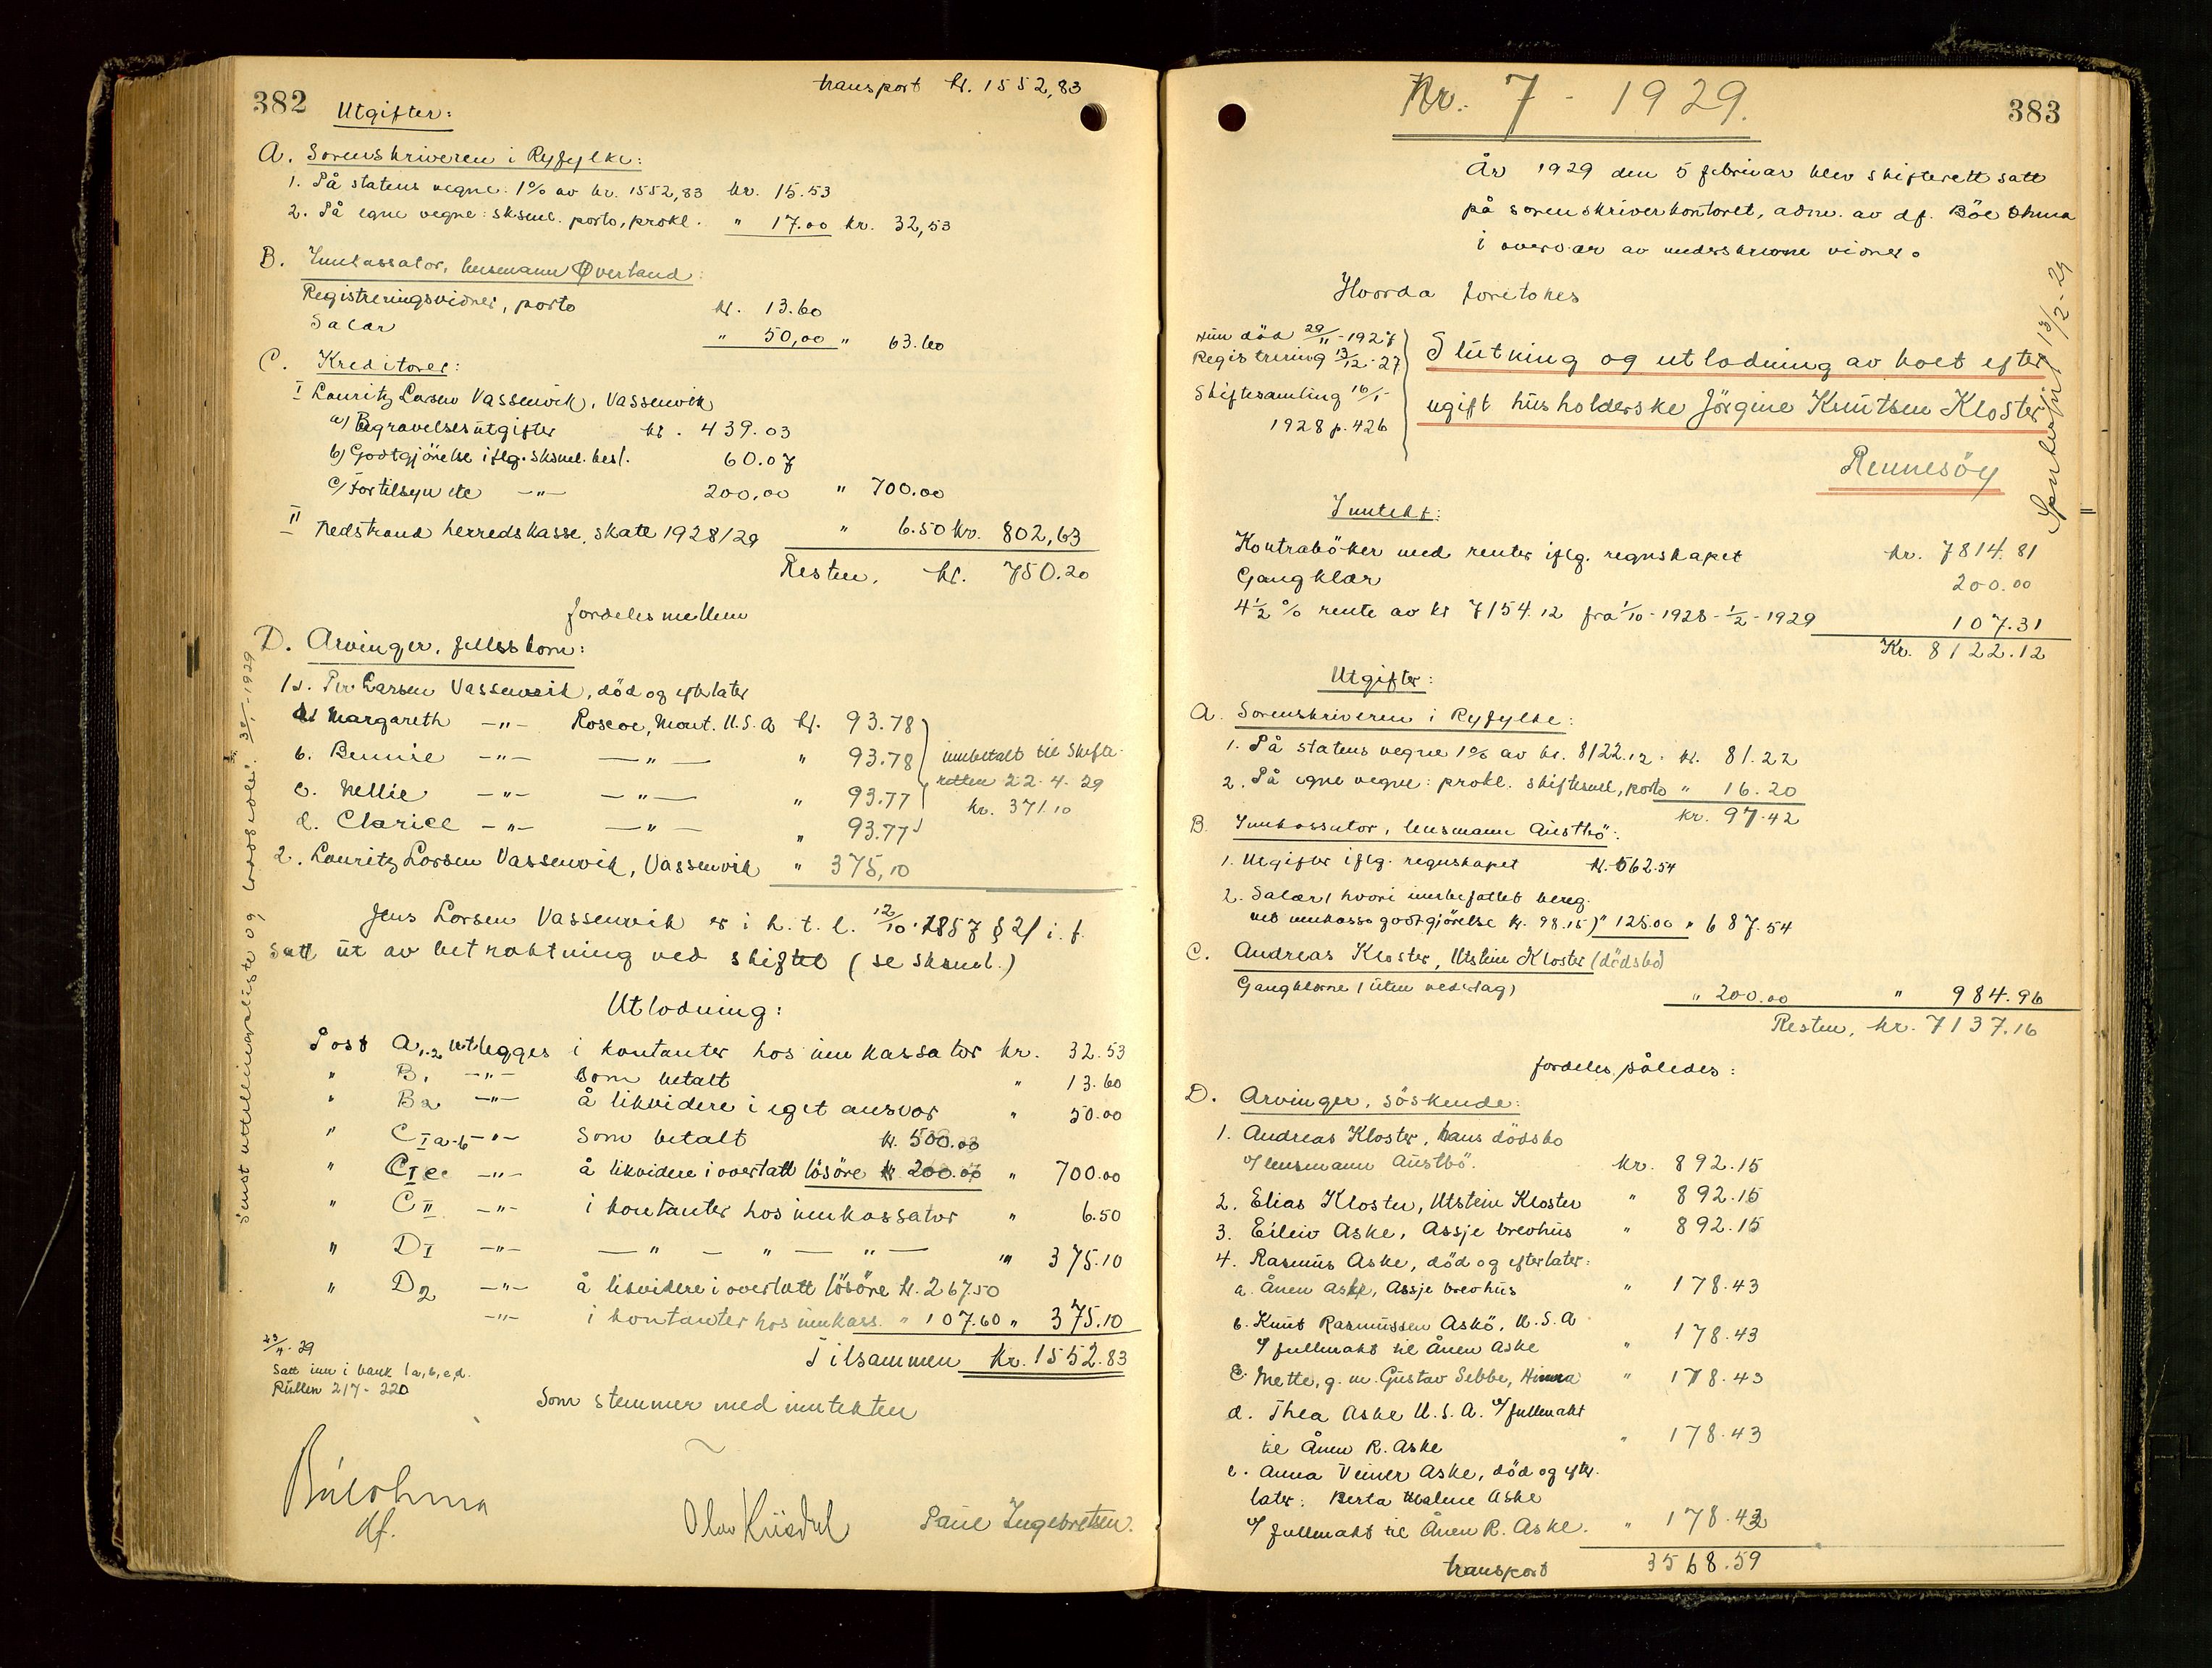 382
transport kr. 1552,83
Utgifter:
A. Sorenskriveren i Ryfylke:
1. På statens vegne: 1% av kr. 1552,83 kr. 15.53
2. På egne vegne: sksml. porto, prokl. " 17.00 kr. 32,53
B. Innkassator, lensmann Øverland:
Registreringsvidner, porto kr. 13.60
Salær " 50,00 " 63.60
C. Kreditorer:
I Lauritz Larsen Vassenvik, Vassenvik
a) Begravelsesutgifter kr. 439.03
b) Godtgjörelse iflg. sksml. besl. 60.07
c) For tilsyn etc -"- 200.00 " 700.00
II Nedstrand herredskasse, skatt 1928/29 " 6.50 kr. 802,63
Resten, kr. 750.20
fordeles mellem
D. Arvinger, fellesborn:
1. Per Larsen Vassenvik, död og efterlater
a. Margareth -"- Roscoe, Mont. U.S.A kr. 93.78
b. Bennie -"- -"- " 93.78 innbetalt til Skifte-
retten 22-4-29
c. Nellie -"- -"- " 93.77
kr. 371.10
d. Clarice -"- -"- " 93.77
2. Lauritz Larsen Vassenvik, Vassenvik " 375,10
Jens Larsen Vassenvik er i h. t. l. 12/10 1857 § 21 i. f.
satt ut av betraktning ved skiftet (se sksml.)
Utlodning:
Post A1.2 utlegges i kontanter hos innkassator kr. 32.53
" B1 -"- som betalt " 13.60
" B2 -"- å likvidere i eget ansvar " 50.00
" C I a-b -"- som betalt kr. 500.00
" C I c -"- å likvidere i overtatt lösöre kr. 200.00 " 700.00
" C II -"- i kontanter hos innkassator " 6.50
" D I -"- -"- -"- -"- " 375.10
" D2 -"- å likvidere i overtatt lösöre kr. 267.50
-"- i kontanter hos innkass. " 107.60 " 375.10
Tilsammen kr. 1552.83
Satt inn i bank 1a,b,c,d.
Rullen 217-220
Som stemmer med inntekten
Böe Ohma
df.
Paul Ingebretsen.
Nr. 7 - 1929.
383
År 1929 den 5 februar blev skifterett satt
på sorenskriverkontoret, adm. av df. Böe Ohma
i overvær av underskrevne vidner.
Hvorda foretokes
Hun död 29/11-1927
Registrering 13/12-27
Skiftesamling 16/1
1928 p. 426
Slutning og utlodning av boet efter
ugift husholderske Jörgine Knutsen Kloster
Rennesöy
Inntekt:
Kontraböker med renter iflg. regnskapet kr. 7814.81
Gangklær 200.00
4½ % rente av kr 7154.12 fra 1/10-1928-1/2-1929 107.31
Kr. 8122.12
Utgifter:
A. Sorenskriveren i Ryfylke:
1. På statens vegne 1% av kr. 8122.12. kr. 81.22
2. På egne vegne: prokl. skiftesml., porto " 16.20
kr. 97.42
B. Innkassator, lensmann Austbö:
1. Utgifter iflg. regnskapet kr. 562.54
2. Salær (hvori innbefattet bereg-
net innkasso godtgjörelse kr. 98.15) " 125.00 " 687.54
C. Andreas Kloster, Utstein Kloster (dödsbo)
Gangklærne (uten vederlag) " 200.00 " 984.96
Resten, kr. 7137.16
fordeles således:
D. Arvinger, söskende:
1. Andreas Kloster, hans dödsbo
v/ lensmann Austbö. kr. 892.15
2. Elias Kloster, Utstein Kloster " 892.15
3. Eileiv Aske, Assje brevhus " 892.15
4. Rasmus Aske, död og efterlater:
a. Ånen Aske, Assje brevhus " 178.43
b. Knut Rasmussen Askö, U.S.A
v/ fullmakt til Ånen Aske " 178.43
c. Mette, g. m. Gustav Sebbe, Hinna " 178.43
d. Thea Aske U.S.A. v/ fullmakt
til Ånen R. Aske " 178.43
e. Anna Veiner Aske, död og efter-
later: Berta Malene Aske
v/ fullmakt til Ånen R. Aske. " 178.42
transport 3568.59